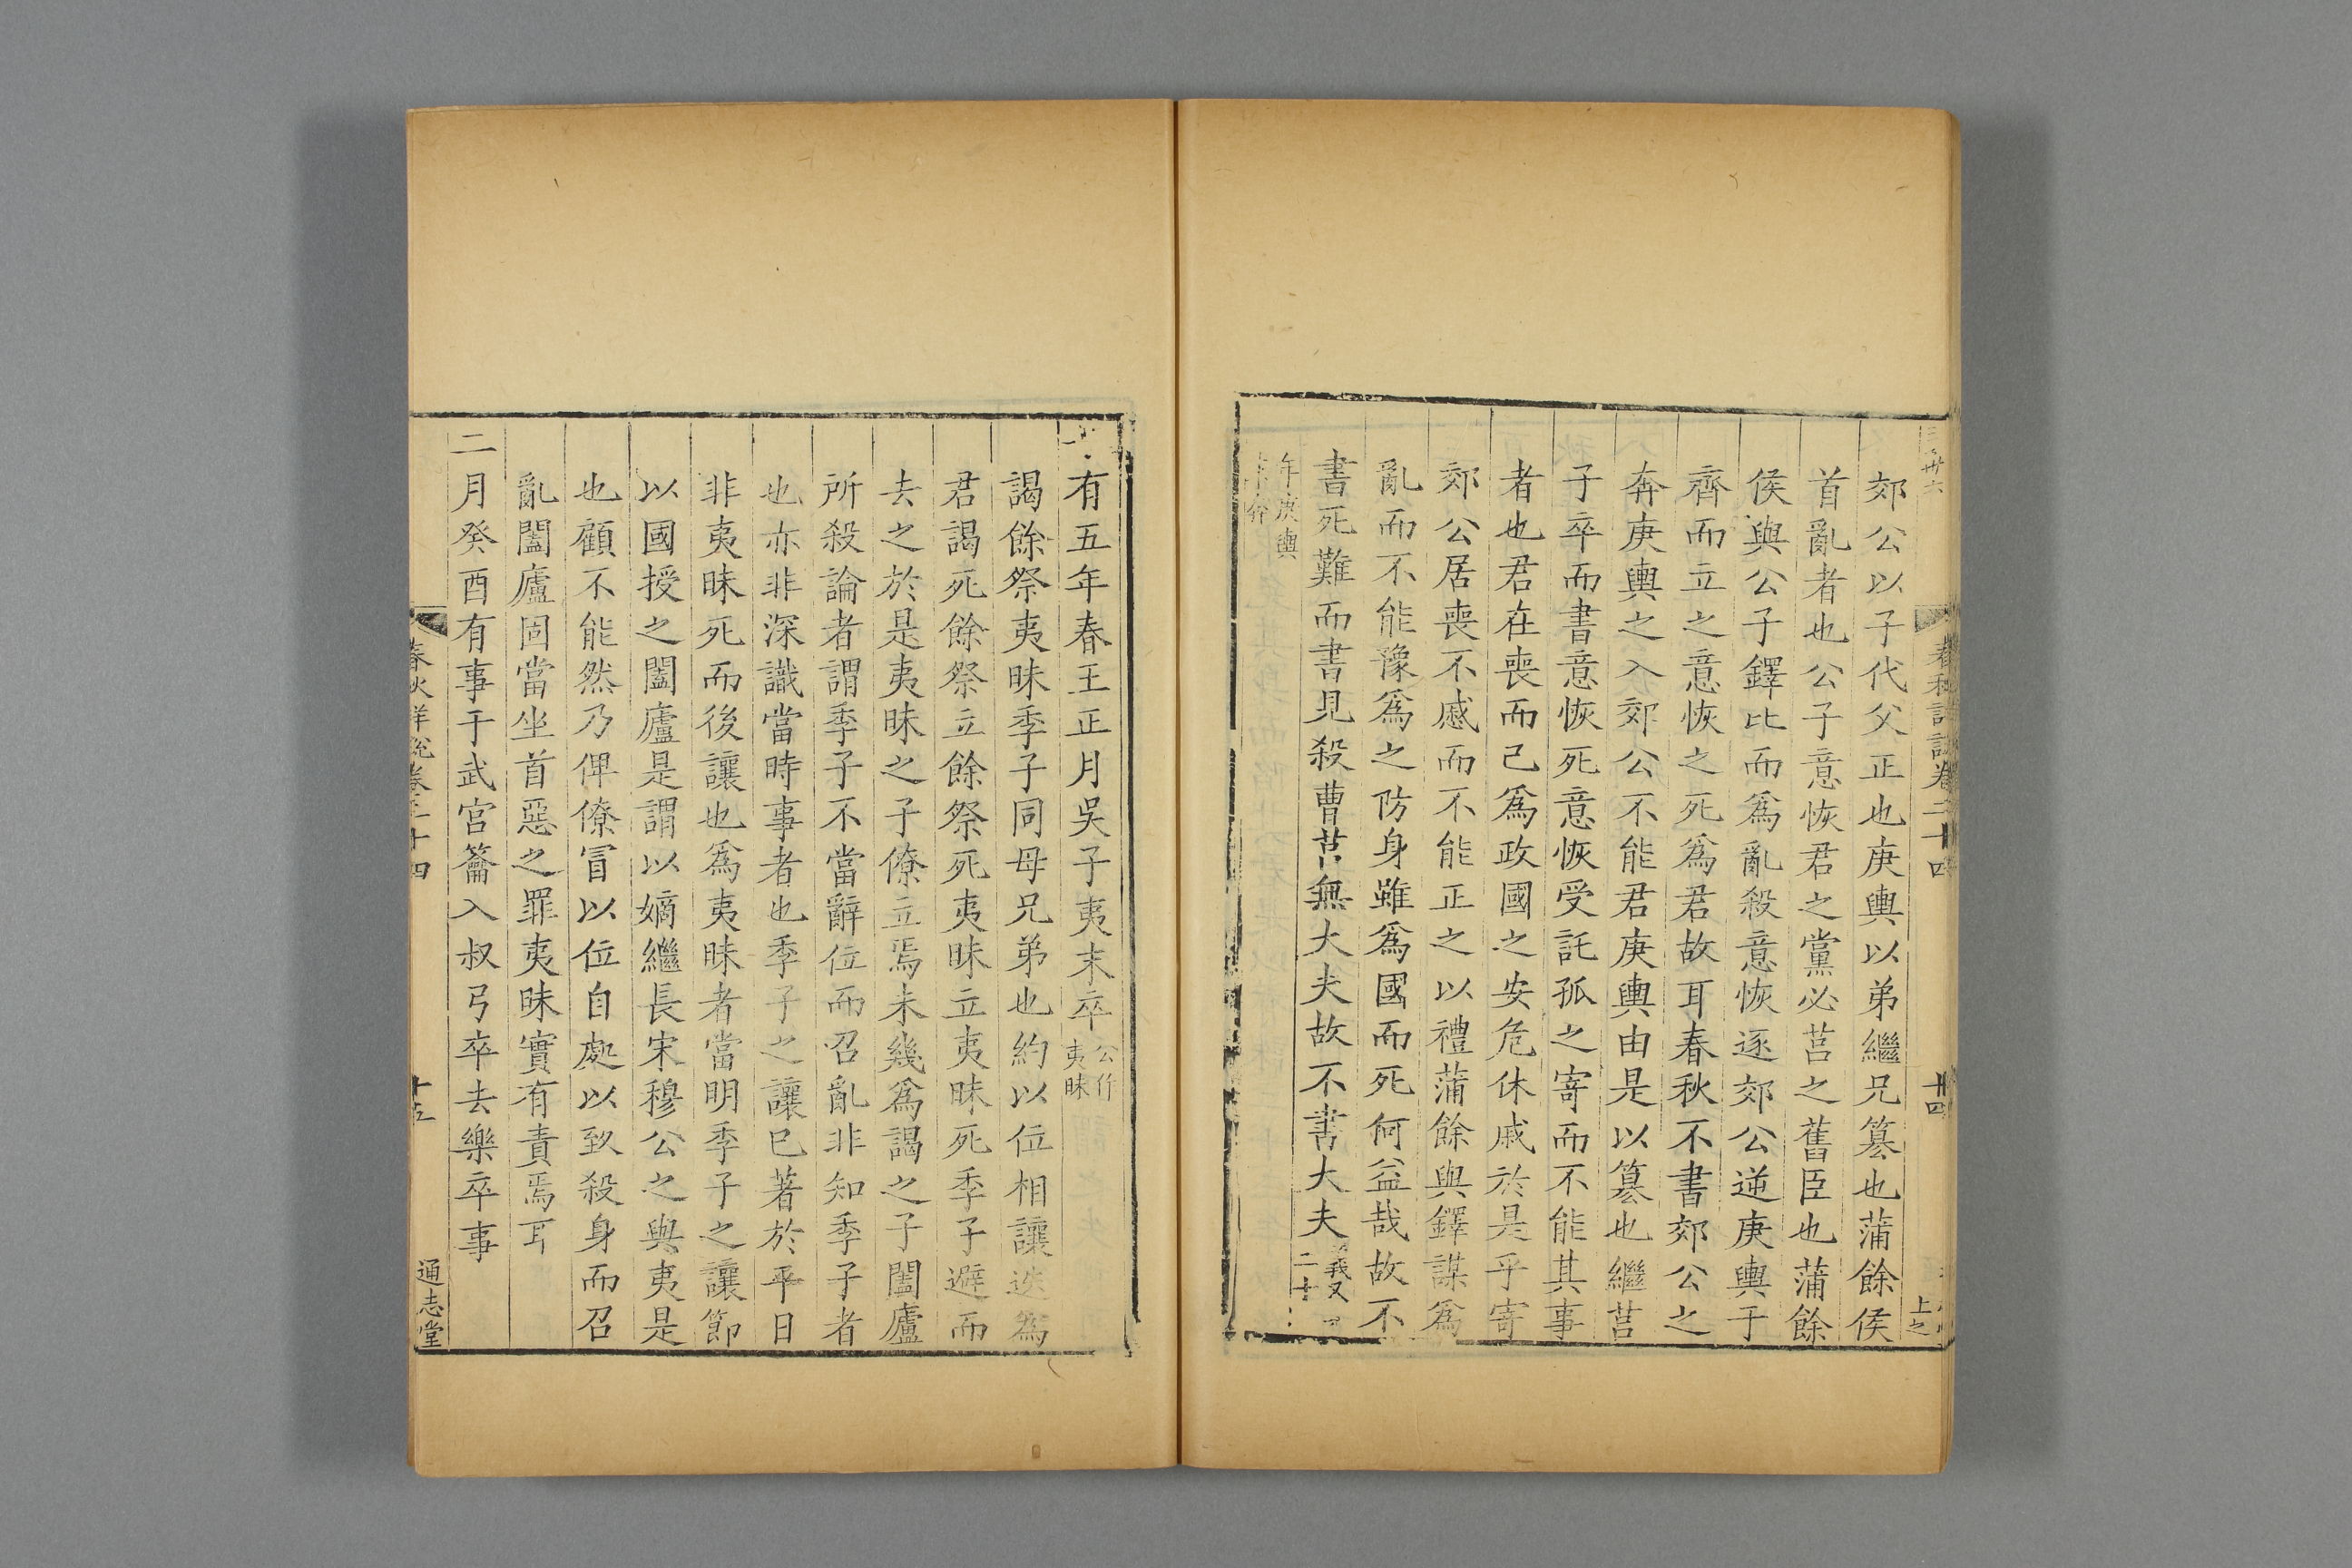 春秋詳說卷二十四
廿四
郊公以子代父正也庚輿以弟繼兄篡也蒲餘侯
首亂者也公子意恢君之黨必莒之舊臣也蒲餘
侯與公子鐸比而爲亂殺意恢逐郊公逆庚輿于
齊而立之意恢之死爲君故耳春秋不書郊公之
奔庚輿之入郊公不能君庚輿由是以篡也繼莒
子卒而書意恢死意恢受託孤之寄而不能其事
者也君在喪而己爲政國之安危休戚於是乎寄
郊公居喪不慼而不能正之以禮蒲餘與鐸謀爲
亂而不能豫爲之防身雖爲國而死何益哉故不
書死難而書見殺曹莒無大夫故不書大夫義又
二十
年庚輿
來奔
有五年春王正月吳子夷末卒公作
夷昧
謁餘祭夷昧季子同母兄弟也約以位相讓迭爲
君謁死餘祭立餘祭死夷昧立夷昧死季子避而
去之於是夷昧之子僚立焉未幾爲謁之子闔廬
所殺論者謂季子不當辭位而召亂非知季子者
也亦非深識當時事者也季子之讓已著於平日
非夷昧死而後讓也爲夷昧者當明季子之讓節
以國授之闔廬是謂以嫡繼長宋穆公之與夷是
也顧不能然乃俾僚冒以位自處以致殺身而召
亂闔廬固當坐首惡之罪夷昧實有責焉耳
二月癸酉有事于武宮籥入叔弓卒去樂卒事
春秋詳說卷二十四
十五
通志堂